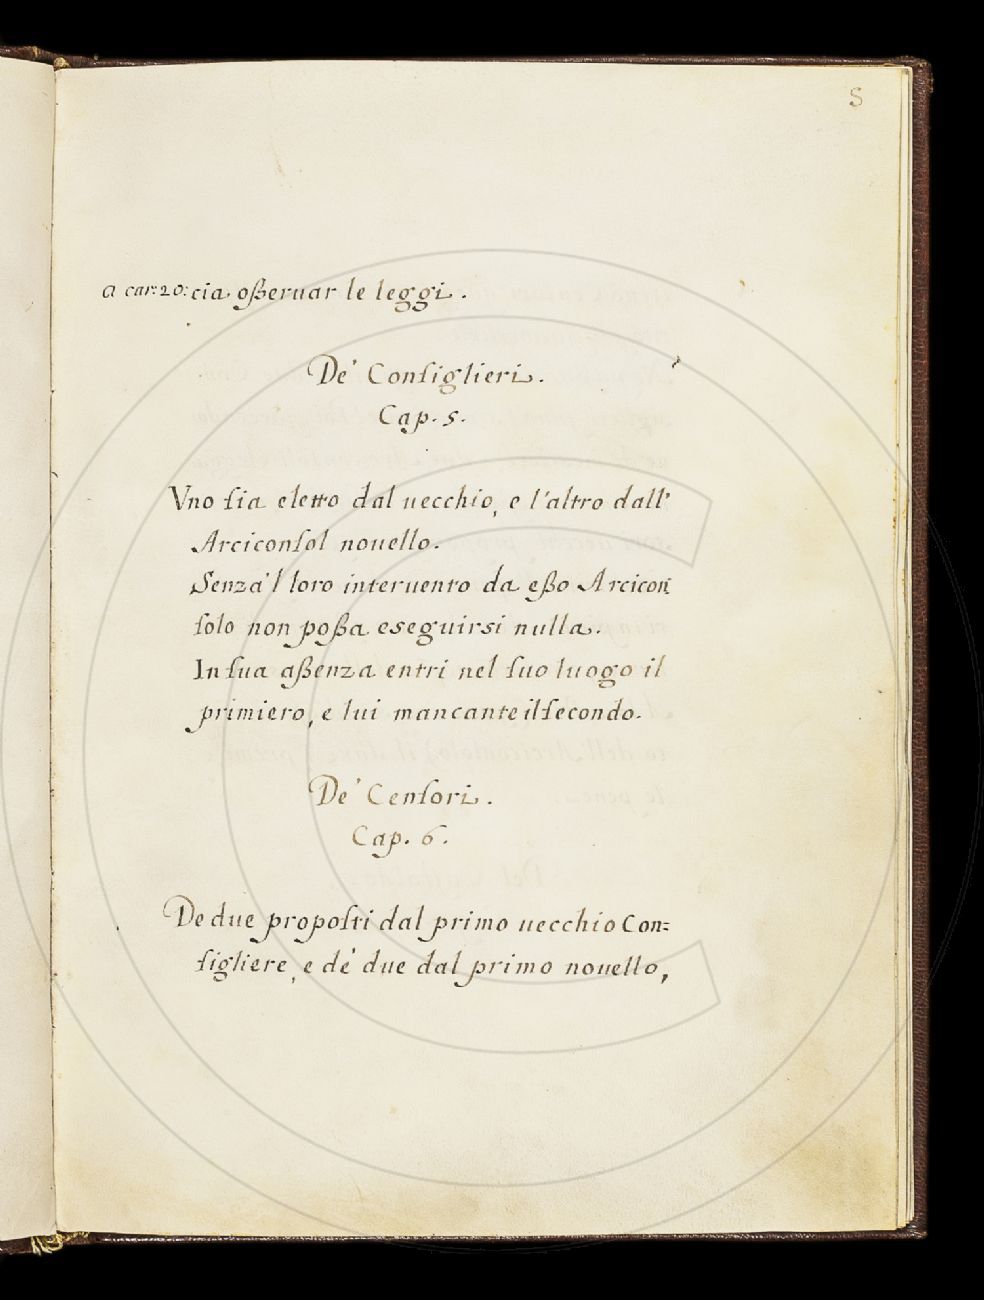 5
a car: 20: cia oßeruar le leggi.
De' Conſiglieri.
Cap. 5.
Vno ſia eletto dal uecchio, e l'altro dall'
Arciconſol nouello.
Senza'l loro interuento da eßo Arcicon
ſolo non poßa eseguirsi nulla.
In ſua aßenza entri nel ſuo luogo il
primiero, e lui mancante il ſecondo.
De' Cenſori.
Cap. 6.
De due propoſti dal primo uecchio Con=
ſigliere, e de' due dal primo nouello,